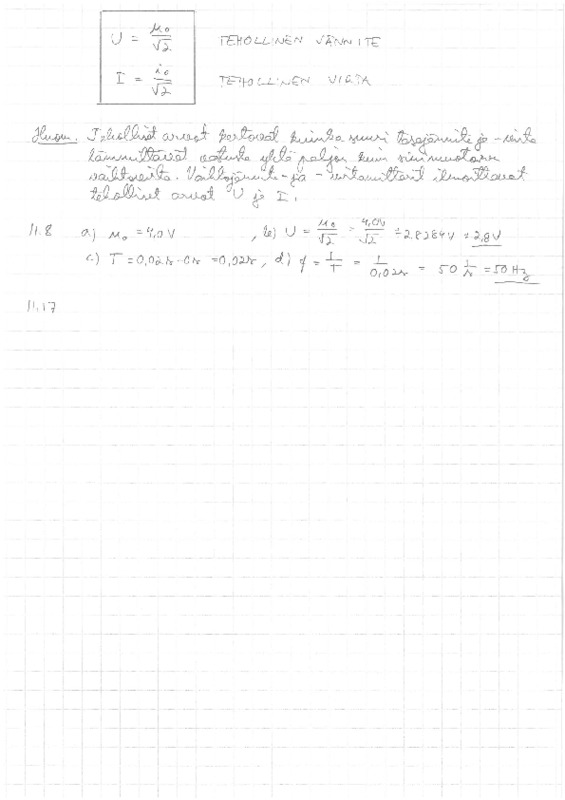 U = u₀/√2 TEHOLLINEN JÄNNITE
I = i₀/√2 TEHOLLINEN VIRTA
Huom. Teholliset arvot kertovat kuinka suuri tasajännite ja -virta
lämmittävät vastusta yhtä paljon kuin sinimuotoinen
vaihtovirta. Vaihtojännite- ja -virtamittarit ilmoittavat
teholliset arvot U ja I.
11.8 a) u₀ = 4,0 V , b) U = u₀/√2 = 4,0V/√2 = 2,8284V = 2,8V
c) T = 0,02s - 0s = 0,02s, d) f = 1/T = 1/0,02s = 50 1/s = 50 Hz
11.17